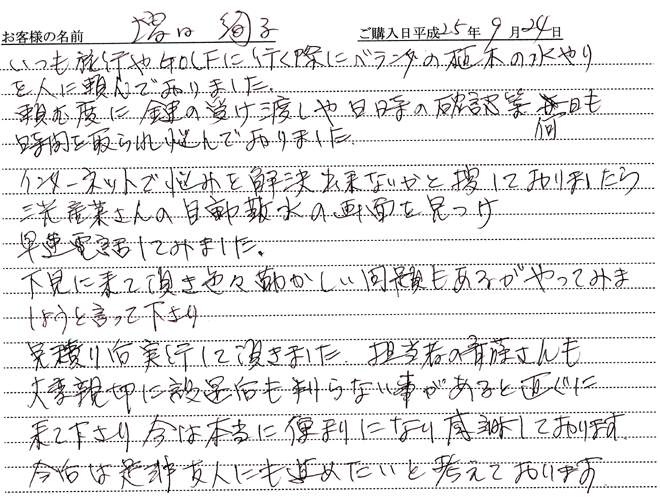 お客様の名前 溝口 絢子 ご購入日平成25年9月24日
いつも旅行やGOLFに行く際にベランダの植木の水やり
を人に頼んでおりました。
頼む度に鍵の受け渡しや日時の確認等何日も
時間を取られ悩んでおりました。
インターネットで悩みを解決出来ないかと捜しておりましたら
三光産業さんの自動散水の画面を見つけ
早速電話してみました。
下見に来て頂き色々難かしい問題もあるがやってみま
しょうと言って下さり
見積り后実行して頂きました。担当者の さんも
大変親切に設置后も判らない事があると直ぐに
来て下さり今は本当に便利になり感謝しております。
今后は是非友人にも進めたいと考えております。